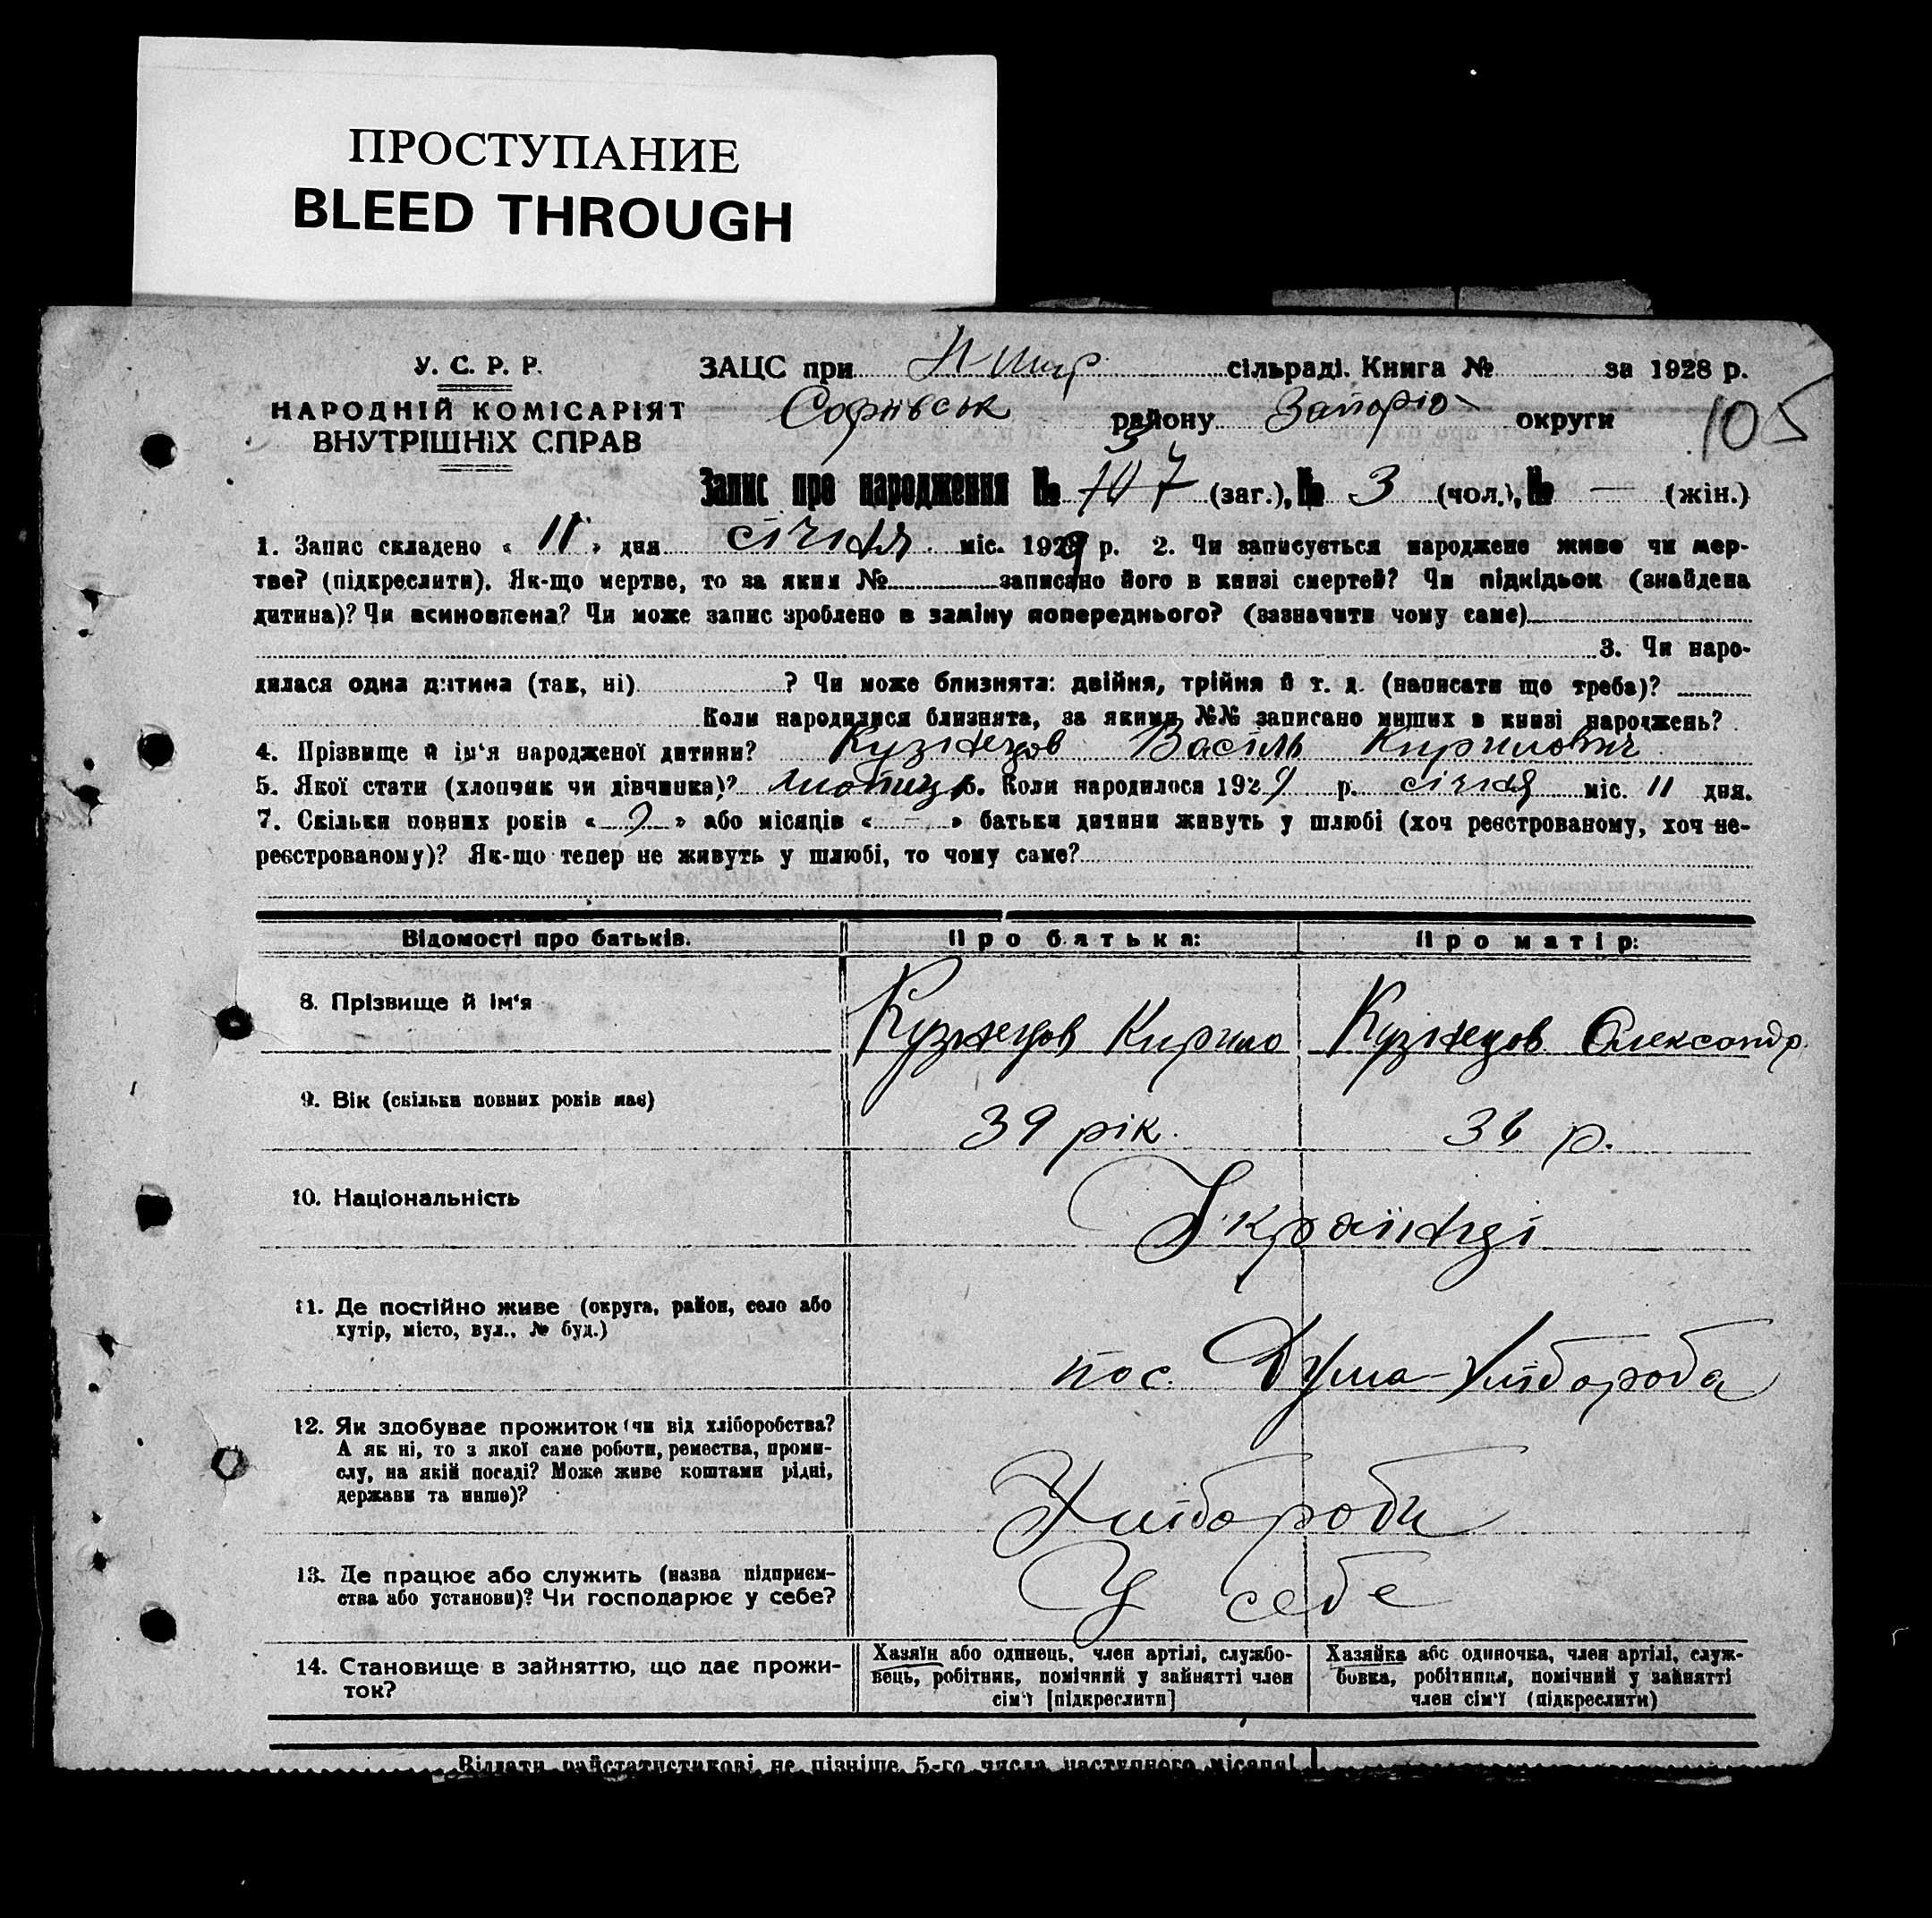 ПРОСТУПАНИЕ
BLEED THROUGH
У. С. Р. Р.
НАРОДНІЙ КОМІСАРІЯТ
ВНУТРІШНІХ СПРАВ
ЗАЦС при сільраді. Книга № за 1928 р.
Софіївськ району Запоріз округи
105
Запис про народження № 7 (заг.), № 3 (чол.), № — (жін.)
1. Запис складено « 11 » дня січня міс. 1929 р. 2. Чи записується народжене живе чи мер-
тве? (підкреслити). Як-що мертве, то за яким № записано його в книзі смертей? Чи підкідьок (знайдена
дитина)? Чи всиновлена? Чи може запис зроблено в заміну попереднього? (зазначити чому саме)
3. Чи наро-
дилася одна дитина (так, ні) ? Чи може близнята: двійня, трійня й т. д. (написати що треба)?
Коли народилися близнята, за якими №№ записано инших в книзі народжень?
4. Прізвище й ім‘я народженої дитини? Кузнецов Василь Кирилович
5. Якої стати (хлопчик чи дівчинка)? хлопець 6. Коли народилося 1929 р. січня міс. 11 дня.
7. Скільки повних років « » або місяців « - » батьки дитини живуть у шлюбі (хоч реєстрованому, хоч не-
реєстрованому)? Як-що тепер не живуть у шлюбі, то чому саме?
Відомості про батьків. Про батька: Про матір:
8. Прізвище й ім‘я Кузнецов Кирило Кузнецов Олександр.
9. Вік (скільки повних років має) 39 рік. 36 р.
10. Національність Українці
11. Де постійно живе (округа, район, село або
хутір, місто, вул., № буд.)
пос. Дума-Хлібороба
12. Як здобуває прожиток (чи від хліборобства?
А як ні, то з якої саме роботи, ремества, проми-
слу, на якій посаді? Може живе коштами рідні,
держави та инше)?
Хлібороби
13. Де працює або служить (назва підприєм-
ства або установи)? Чи господарює у себе?
У себе
14. Становище в зайняттю, що дає прожи-
ток?
Хазяїн або одинець, член артілі, службо-
вець, робітник, помічний у зайнятті член
сім‘ї [підкреслити]
Хазяйка або одиночка, член артілі, служ-
бовка, робітниця, помічний у зайнятті
член сім‘ї (підкреслити)
Віддати райстатистикові не пізніше 5-го числа наступного місяця!